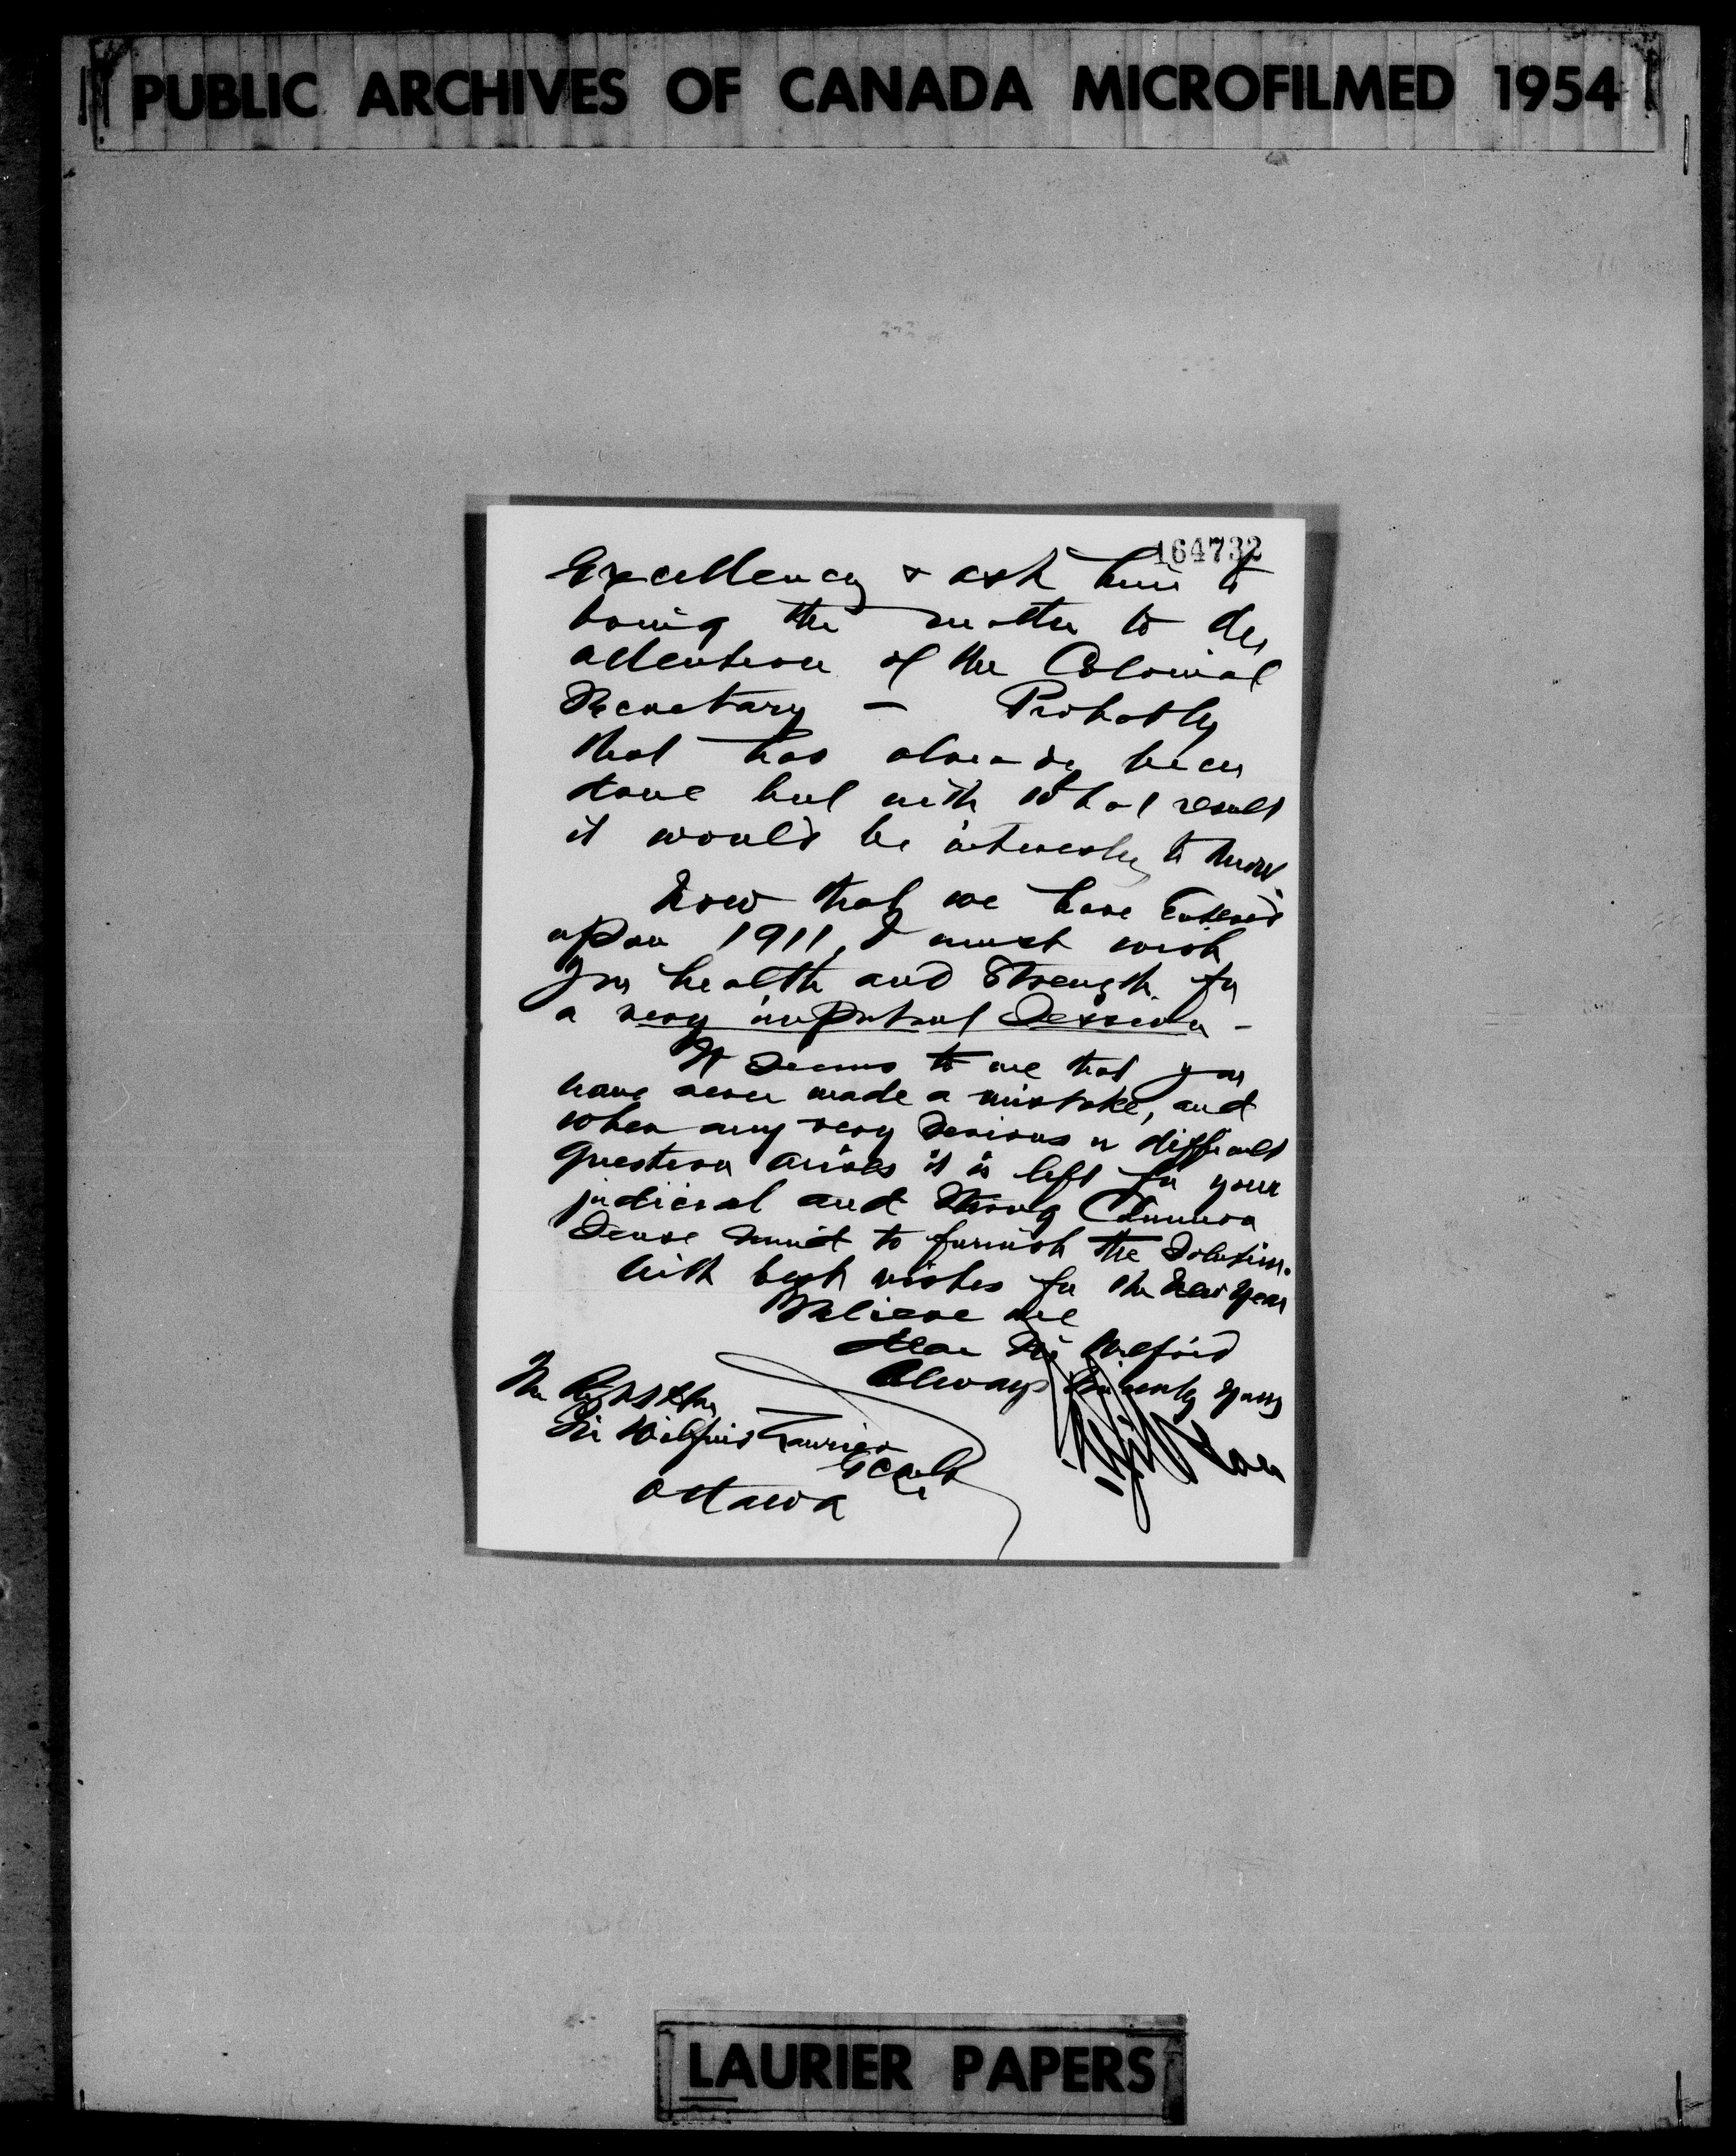 PUBLIC ARCHIVES OF CANADA MICROFILMED 1954
164732
Excellency & ask him to
bring the matter to the
attention of the Colonial
Secretary – Probably
that has already been
done but with what result
it would be interesting to know.
Now that we have entered
upon 1911, I must wish
you health and strength for
a very important Session –
It seems to me that you
have never made a mistake, and
when any very serious or difficult
question arises it is left for your
judicial and strong Common
Sense mind to furnish the Solution.
With best wishes for the New Year
Believe me
Dear Sir Wilfrid
Always sincerely yours
The Right Hon
Sir Wilfrid Laurier
GCMG
Ottawa
LAURIER PAPERS